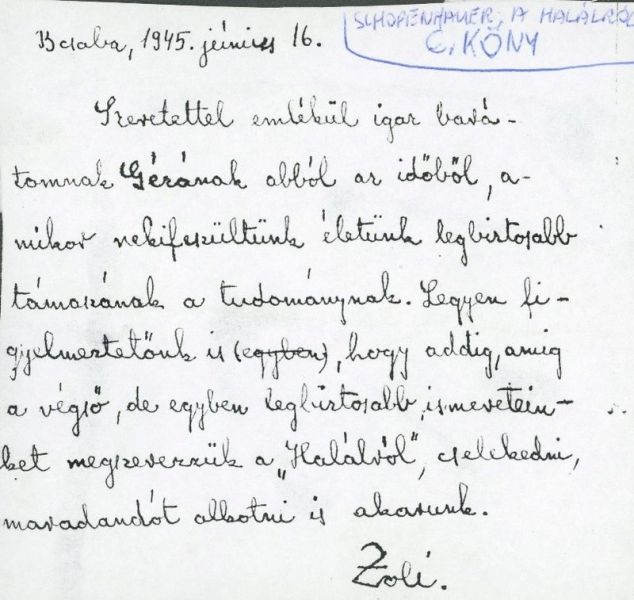 SCHOPENHAUER, A HALÁLRÓL
C. KÖNY
Bcsaba, 1945. június 16.
Szeretettel emlékül igaz bará-
tomnak Gézának abból az időből, a-
mikor nekifeszültünk életünk legbiztosabb
támaszának a tudománynak. Legyen fi-
gyelmeztetőnk is (egyben), hogy addig, amig
a végső, de egyben legbiztosabb, ismeretein-
ket megszerezzük a „Halálról", cselekedni,
maradandót alkotni is akarunk.
Zoli.